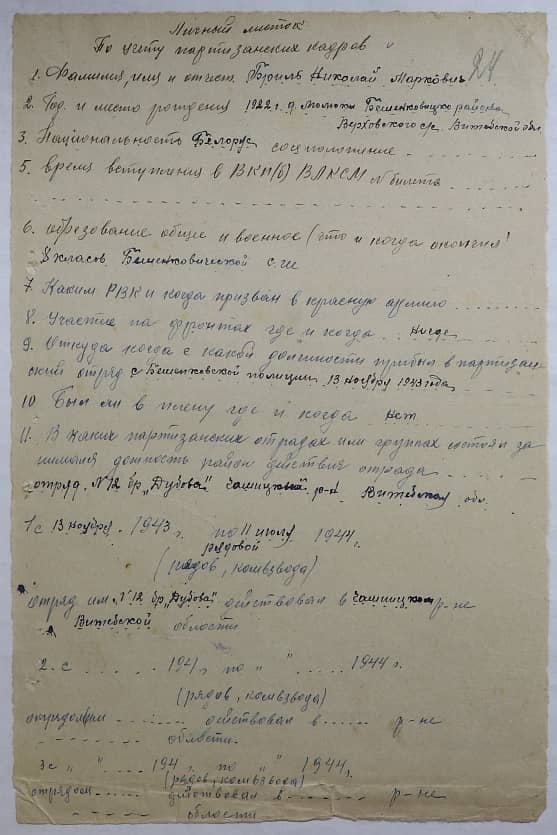 Личный листок
По учету партизанских кадров
24
1. Фамилия, имя и отчест. Бриль Николай Маркович
2. Год и место рождения 1922 г. д. Мартики Бешенковицк района
Верховского с/с. Витебской обл.
3. Национальность Белорус соцположение - - -
5. время вступления в ВКП(б) ВЛКСМ N билета
6. образование общее и военное (что и когда окончил)
8 класов Бешенковической с.ш
7. Каким РВК и когда призван в красную армию . . . . .
8. Участие на фронтах где и когда . . Нигде
9. Откуда когда с какой должности прибыл в партизан
ский отряд с Бешенковской полиции 13 ноября 1943 года
10. Был ли в плену где и когда нет
11. В каких партизанских отрядах или группах состоял за
нималя дожность район действия отряда
отряд. N 12 бр „Дубова" Чашницкий р-н Витебская обл.
1 с 13 ноябру. 1943 г. по 11 июлу 1944 г.
рядовой
(рядов, комвзвода)
отряд им N 12 бр „Дубова" действовал в Чашницком р-не
Витебской области
2. с . . . . . 194 г по „ " . . . . . 1944 г.
(рядов, комвзвода)
отрядом . . . . . действовал в . . . . . р-не
- - - - - области.
3 с „ " . . . . 194 г. по „ " 1944 г.
(рядов, комвзвода)
отрядом . . . . . действовал в - - - - - р-не
- - - - - области